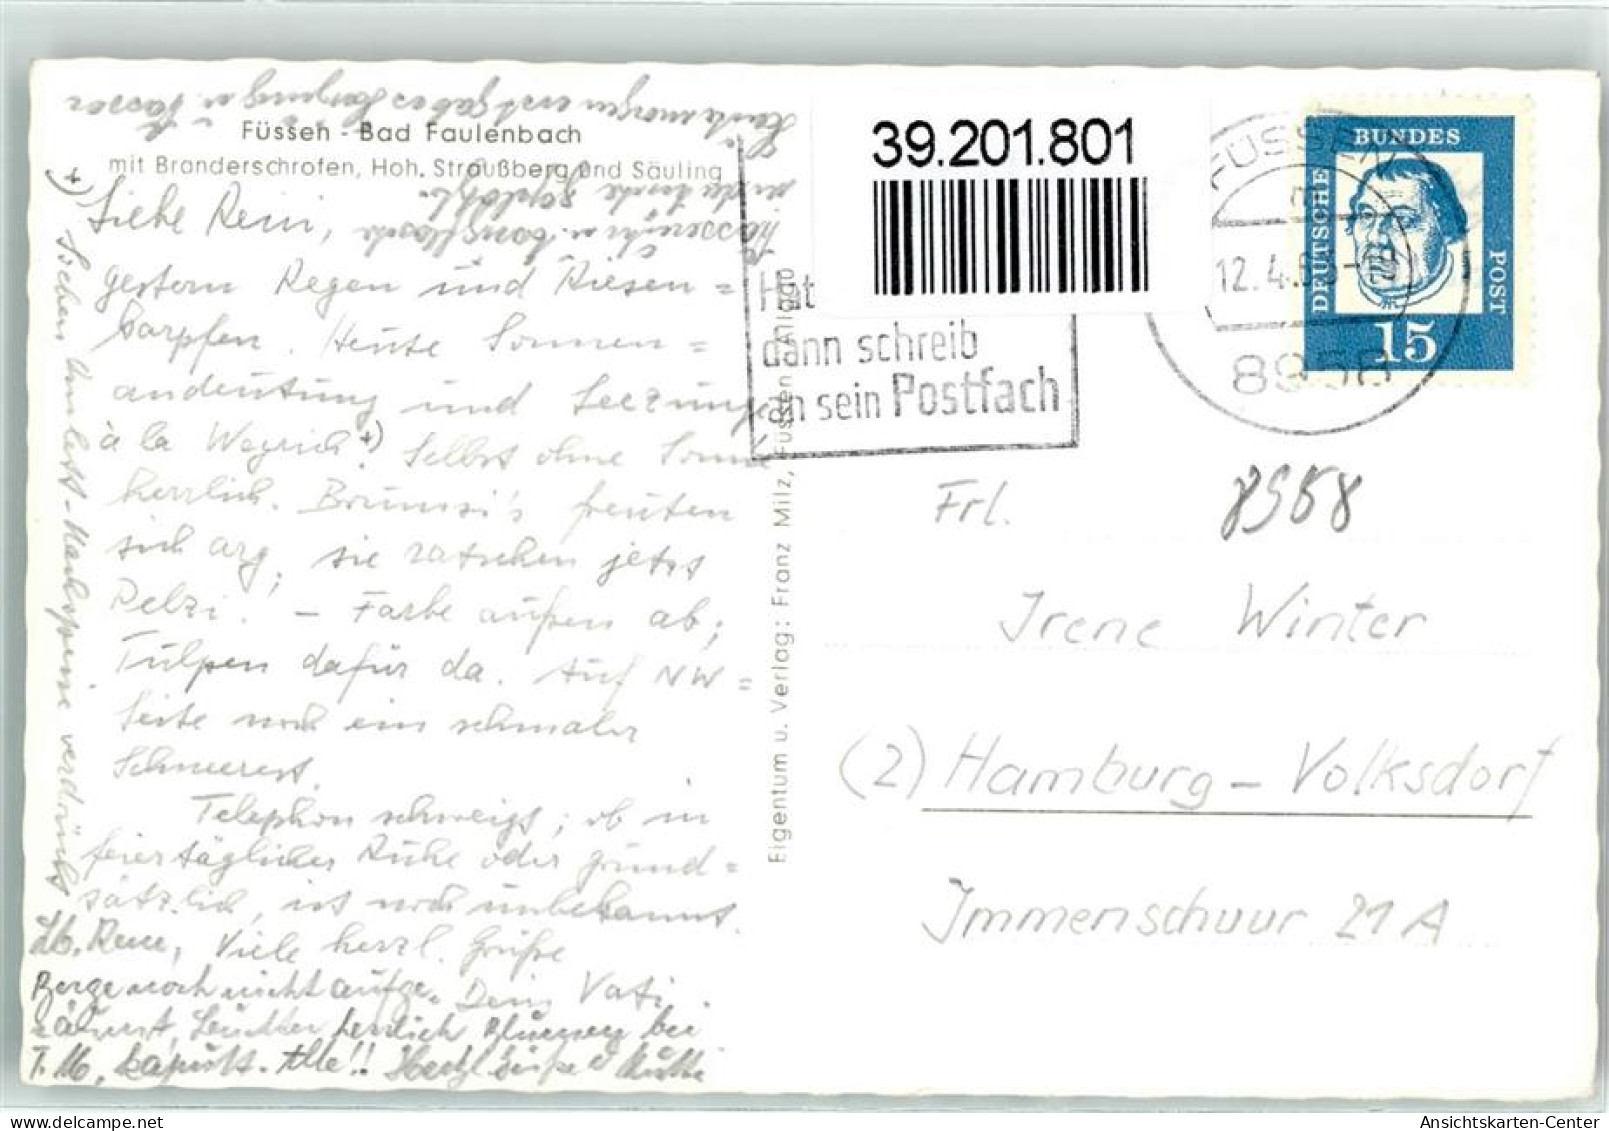 Füssen - Bad Faulenbach
mit Branderschrofen, Hoh. Straußberg und Säuling
Liebe Reni,
gestern Regen und Riesen=
karpfen. Heute Sonnen=
andeutung und Seezunge
à la Weyrich +) Selbst ohne Sonne
herrlich. Brumsi's freuten
sich arg, sie ratschen jetzt
Pelzi! - Farbe außen ab;
Tulpen dafür da. Auf NW=
Seite noch ein schmaler
Schneerest.
Telephon schweigt; ob in
feiertäglicher Ruhe oder grund=
sätzlich, ist noch unbekannt.
Viele herzl. Grüße
Dein Vati.
Lb. Reni,
Berge noch nicht aufge-
räumt, herrlich Blumen bei
T.M. kaputt. Alle!! Herzl Grüße Mutti
+) Soeben Omelett-Nachspeise verdrückt
Heute morgen erst
Eigentum u. Verlag: Franz Milz, Füssen Allgäu
39.201.801
Hat
dann schreib
an sein Postfach
FÜSSEN
a
12.4.6
8958
DEUTSCHE
BUNDES
POST
15
Frl.
8958
Irene Winter
(2) Hamburg - Volksdorf
Immenschuur 21 A
Ansichtskarten-Center